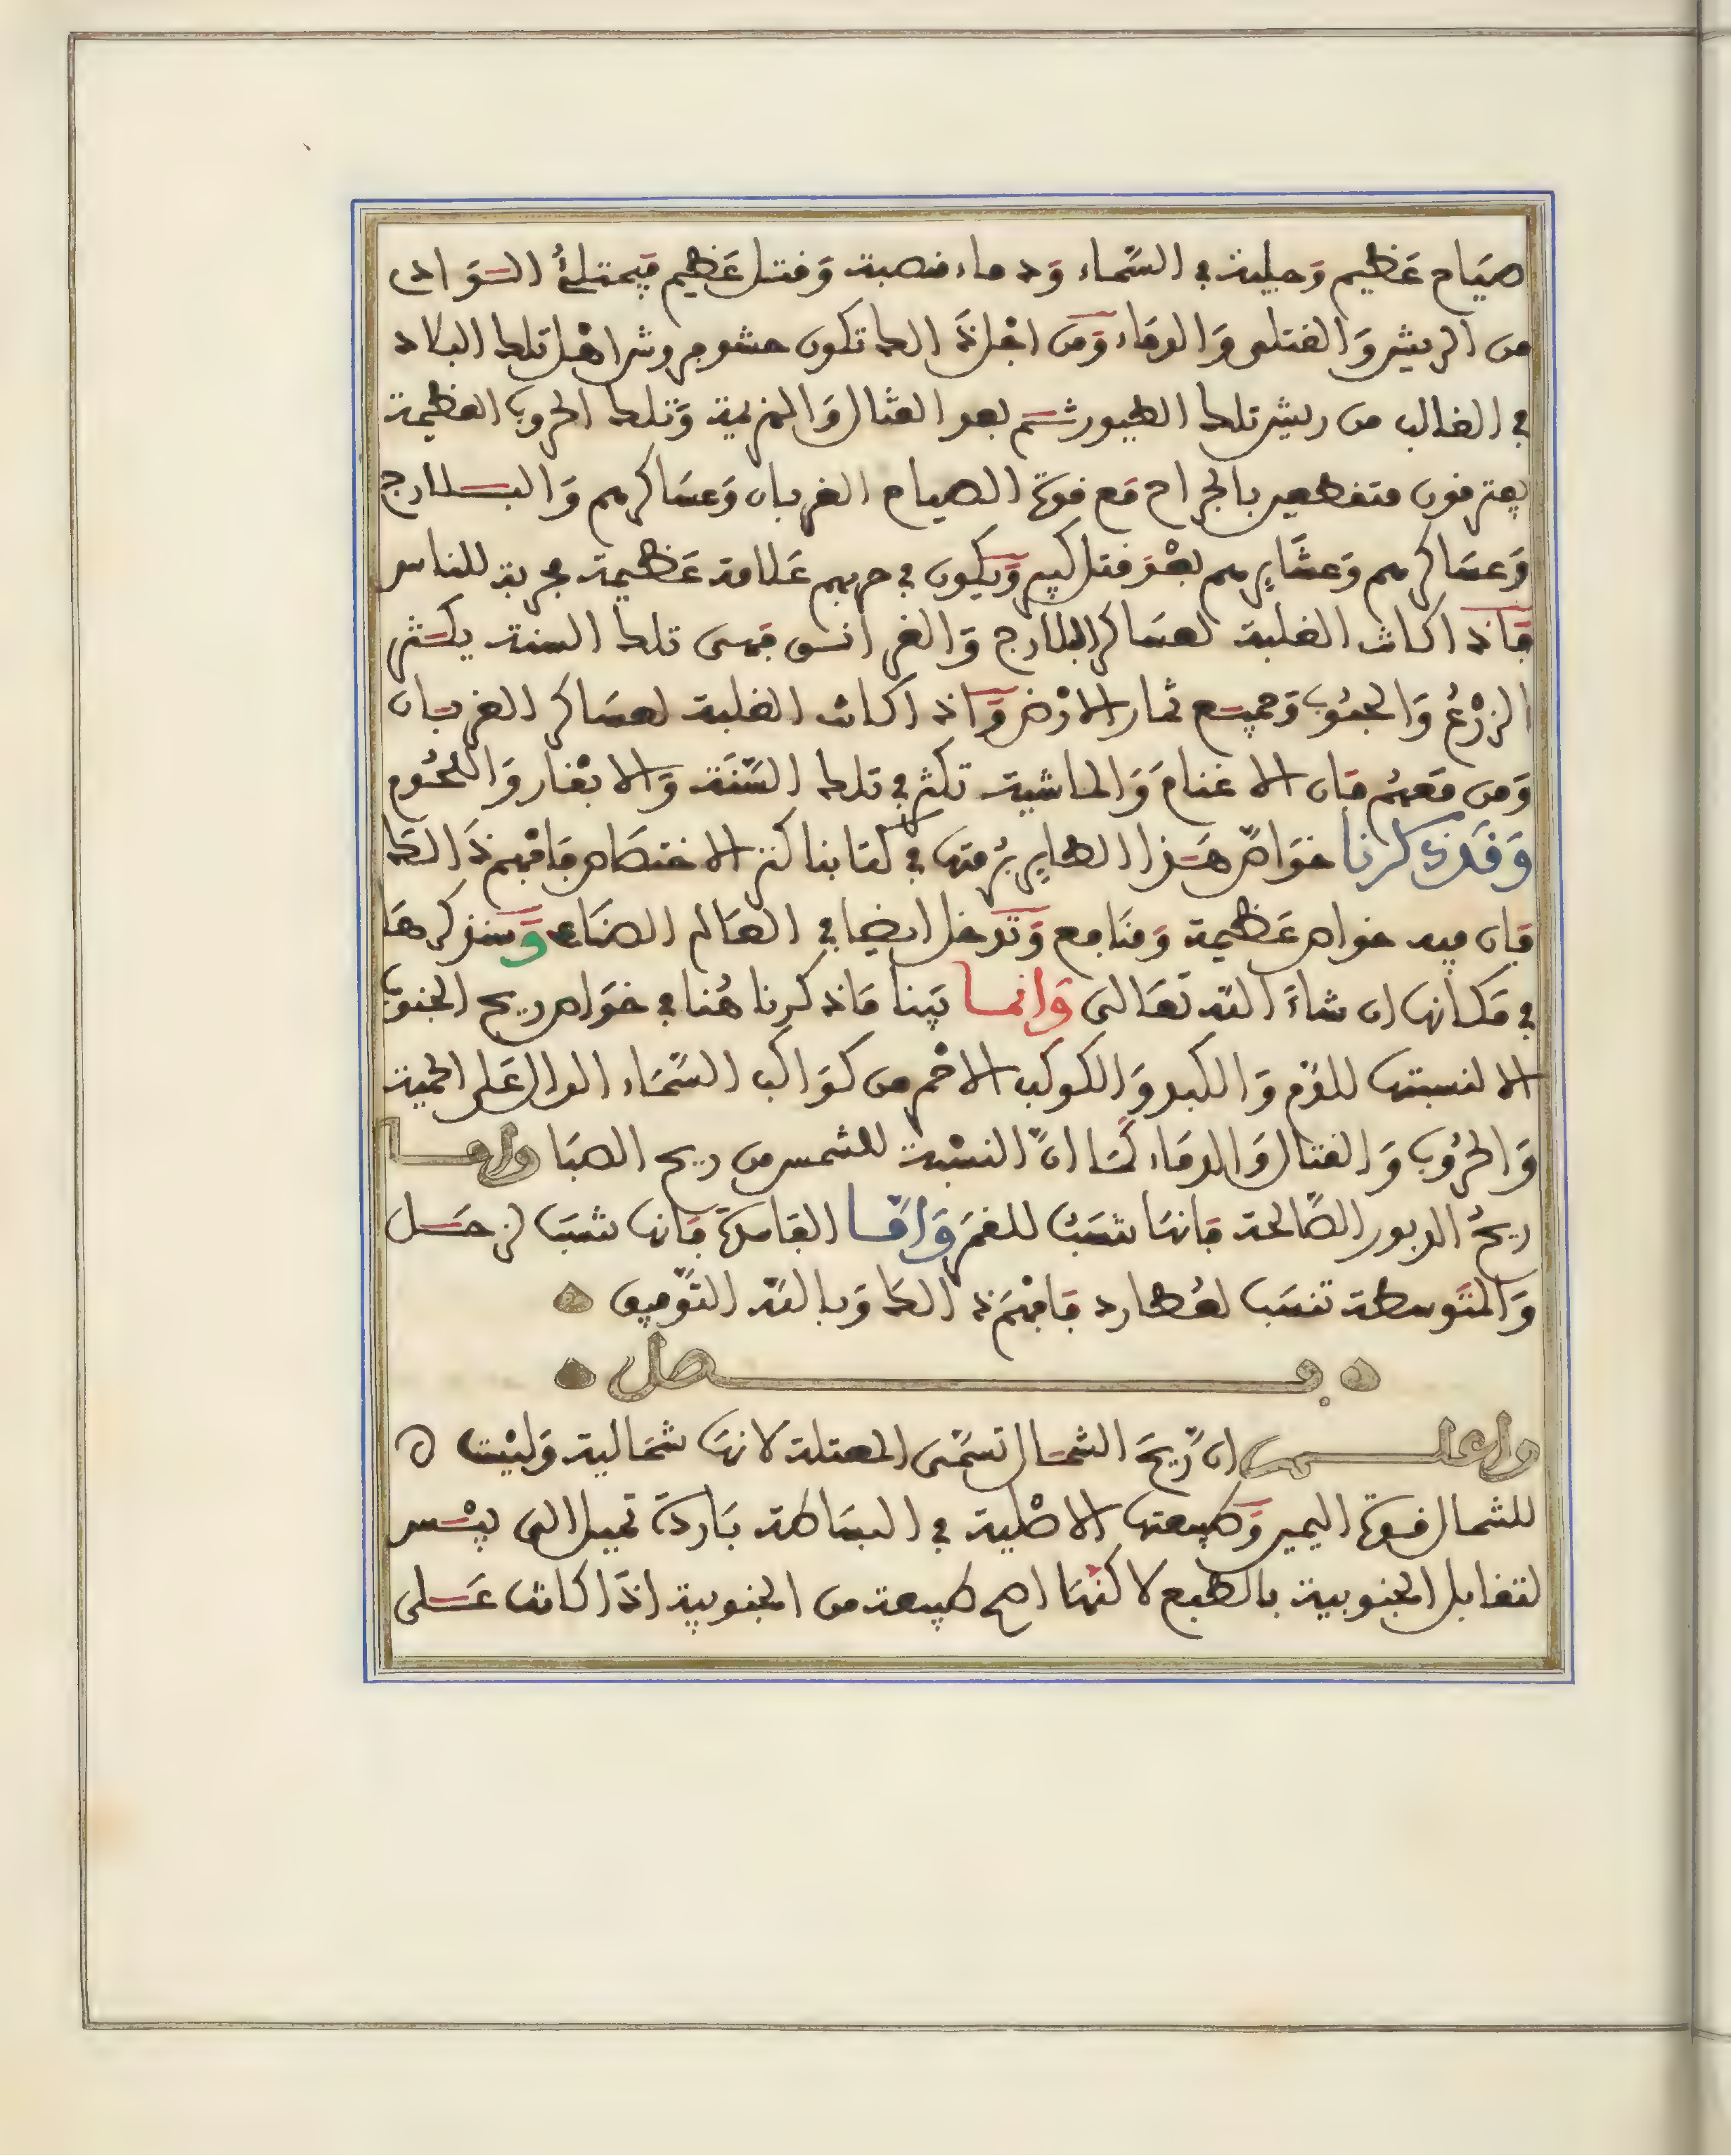 صياح عظيم وجلبة في السماء ودماء منصبة وقتل عظيم فيمتلئ السواد
من الريش والقتلى والدماء ومن اجل ذالك تكون حشوم وش اهل تلك البلاد
في الغالب من ريش تلك الطيور ثم بعد القتال والهزيمة وتلك الحروب العظيمة
يفترقون متقطعين بالجراح مع قوة الصياح الغربان وعساكرهم والبلارج
وعساكرهم وعشايرهم بعد قتل كبير ويكون في حربهم علامة عظيمة مجربة للناس
فاذا كانت الغلبة لعساكر البلارج والغرانيق فهي تلك السنة يكثر
الزرع والحبوب وجميع ثمار الارض واذا كانت الغلبة لعساكر الغربان
ومن معهم فان الاغنام والماشية تكثر في تلك السنة والابقار واللحوم
وقد ذكرنا خواص هذا الطاير برمتها في كتابنا كنز الاختصاص فافهم ذالك
فان فيه خواص عظيمة ومنافع وتدخل ايضا في العالم الصناعي وسنذكرها
في مكانها ان شاء الله تعالى وانما بينا ماذكرنا هنا في خواص ريح الجنوب
الا لنسبتها للدم والكبد والكوكب الاحمر من كواكب السماء الدال على الحمية
والحروب والقتال والدماء كما ان النسبة للشمس من ريح الصبا واما
ريح الدبور الصالحة فانها تنسب للقمر واما الفاسدة فانها تنسب لزحل
والمتوسطة تنسب لعطارد فافهم ذالك وبالله التوفيق
فصل
واعلم ان ريح الشمال تسمى المعتلة لانها شمالية وليست
للشمال قوة اليمين وطبيعتها الاصلية في البساطة باردة تميل الى يبس
لتقابل الجنوبية بالطبع لاكنها اصح طبيعة من الجنوبية اذا كانت على